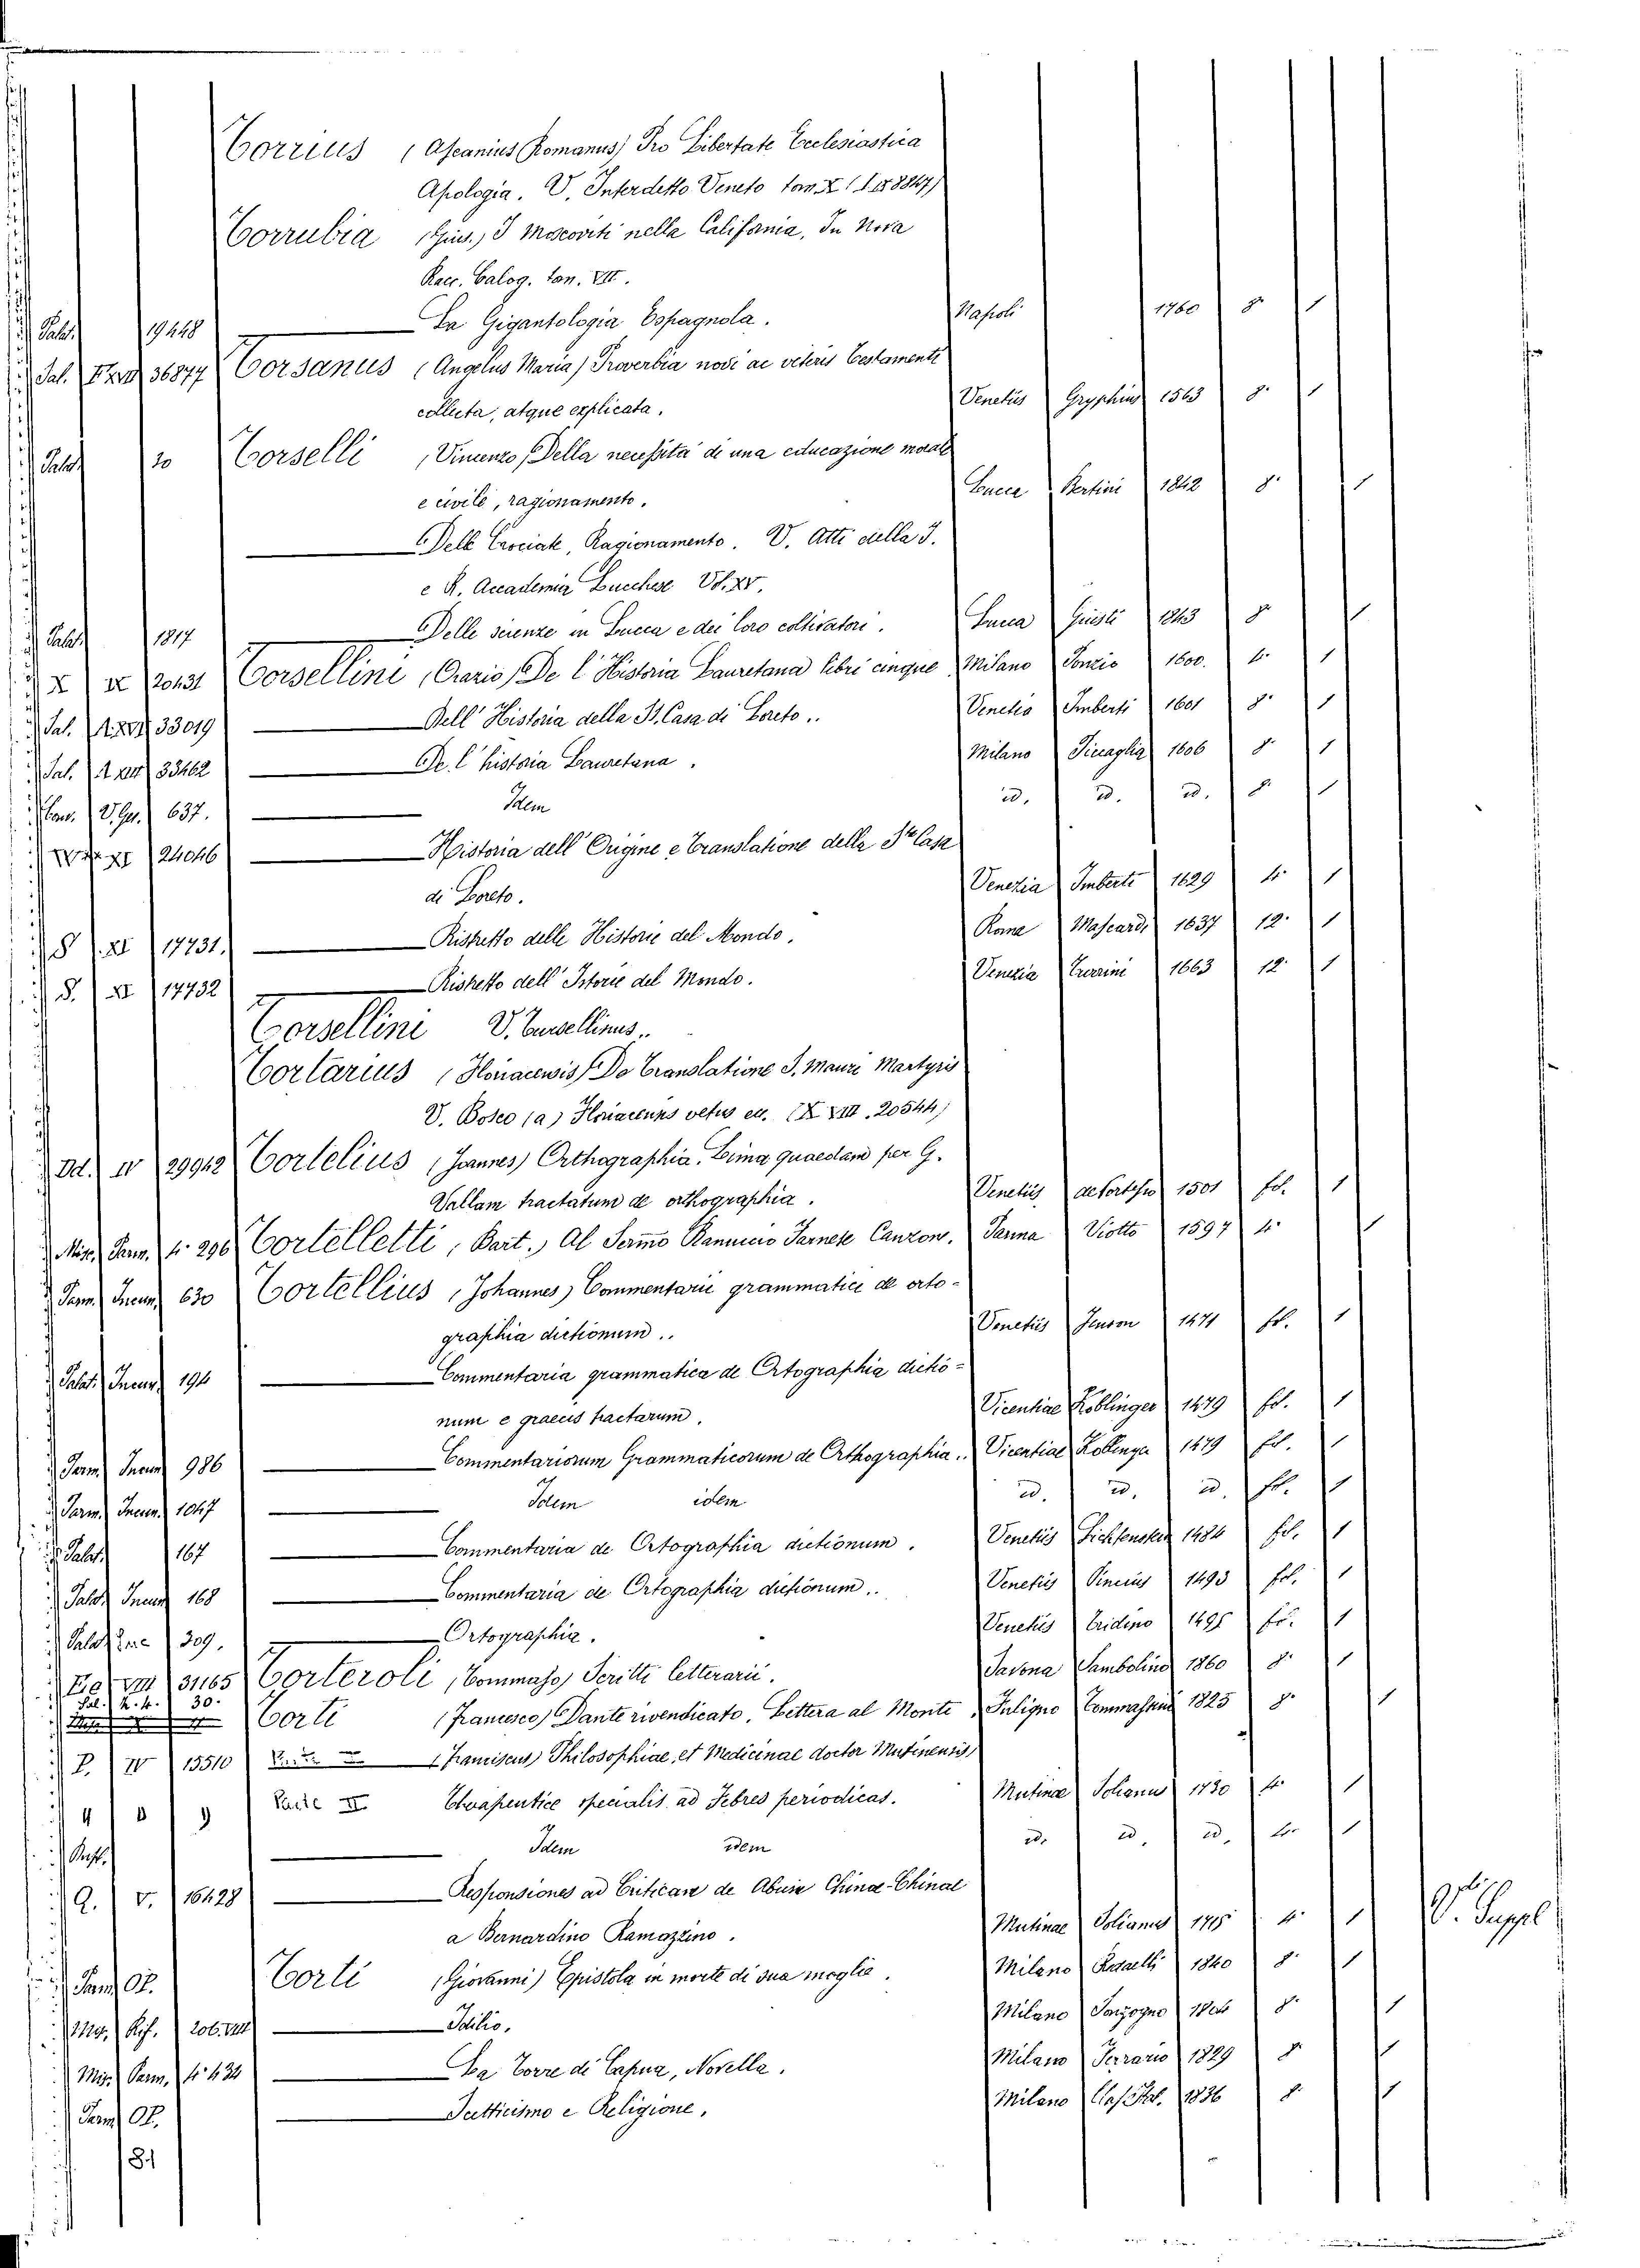 Corrius (Ascanius Romanus) Pro Libertate Ecclesiastica
Apologia. V. Interdetto Veneto tom X
Corrubia (Gius.) I Moscoviti nella California, In Nova
Racc. Calog. tom. VII.
Palat. 19448 La Gigantologia Espagnola. Napoli 1760 8° 1
Sal. 36877 Corsanus (Angelus Maria) Proverbia novi ac veteris Testamenti
collecta, atque explicata. Venetiis Gryphius 1563 8° 1
Palat. 20 Corselli (Vincenzo) Della necessità di una educazione morale
e civile, ragionamento. Lucca Bertini 1842 8° 1
Delle Crociate, Ragionamento. V. Atti della I.
e R. Accademia Lucchese Vol. XV.
Palat. 1817 Delle scienze in Lucca e dei loro coltivatori. Lucca Giusti 1843 8 1
X Corsellini (Orazio) De l'Historia Lauretana libri cinque Milano Ponzio 1600. 4° 1
Sal. 33019 Dell'Historia della S. Casa di Loreto. Venetia Imberti 1601 8° 1
Sal. 33462 De l'historia Lauretana. Milano 1606 8° 1
V. Ges. 637. Idem id. id. id. 8. 1
XI 24046 Historia dell'Origine e Translatione della Sta Casa
di Loreto. Venezia Imberti 1629 4° 1
S XI 17731. Ristretto delle Historie del Mondo. Roma Mascardi 1637 12. 1
S. XI 17732 Ristretto dell'Istorie del Mondo. Venezia 1663 12. 1
Corsellini V. Tursellinus.
Cortarius (Floriacensis) De Translatione S. Mauri Martyris
V. Bosco (a) Floriacensis vetus XIII. 20544)
Dd. IV 29942 Cortelius (Joannes) Orthographia. Lima quaedam per G.
Vallam tractatum de orthographia. Venetiis de Tortesio 1501 fol. 1
Misc. Parm. 4° 296 Cortelletti (Bart.) Al Sermo Ranuccio Farnese Canzon. Parma Viotto 1597 4° 1
Parm. Incun. 630 Cortellius (Johannes) Commentarii grammatici de orto-
graphia dictionum. Venetiis Jenson 1471 fol. 1
Palat. Incun. 194 Commentaria grammatica de Ortographia dictio-
num e graecis tractarum. Vicentiae Koblinger 1479 fol. 1
Parm. Incun. 986 Commentariorum Grammaticorum de Orthographia. Vicentiae Koblinger 1479 fol. 1
Parm. Incun. 1047 Idem idem id. id. id. fol. 1
Palat. 167 Commentaria de Ortographia dictionum. Venetiis Lichtenstein 1484 fol. 1
Palat. Incun. 168 Commentaria de Ortographia dictionum. Venetiis Pincius 1493 fol. 1
Palat. Inc 309. Ortographia. Venetiis Tridino 1495 fol. 1
VIII 31165 Corteroli (Tommaso) Scritti letterarii. Savona Sambolino 1860 8. 1
Sal. K. 4. 30. Corti (Francesco) Dante rivendicato. Lettera al Monti Fuligno Tommassini 1825 8° 1
P. IV 13510 (Franciscus) Philosophiae, et Medicinae doctor Mutinensis)
Parte II Therapentice specialis ad Febres periodicas. Mutinae Solianus 1730 4° 1
Idem idem id. id. id. 4° 1
Q. V. 16428 Responsiones ad Criticam de Abusu Chinae-Chinae
a Bernardino Ramazzino. Mutinae Solianus 4° 1 V. Suppl
Parm. Op. Corti (Giovanni) Epistola in morte di sua moglie. Milano Redaelli 1840 8° 1
206. VIII Idilio. Milano Sonzogno 8° 1
Mis. Parm. 4° 434 La Torre di Capua, Novella. Milano Ferrario 1829 8° 1
Parm. Op. Scetticismo e Religione. Milano 1836 8° 1
81